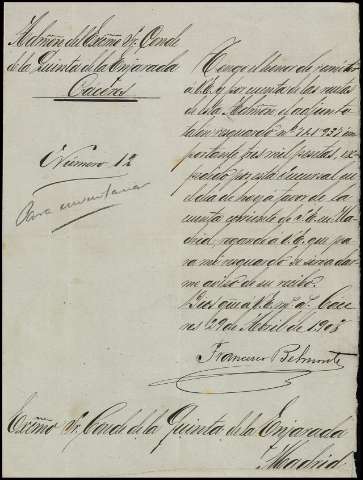 Admón del Excmo Sr. Conde
de la Quinta de la Enjarada
Cáceres
Número 12
Para inventariar
Tengo el honor de remitir
á V.E. y por cuenta de las rentas
de esta Admón el adjunto
talón resguardo nº 711.927 im
portante tres mil pesetas, ex
pedido por esta Sucursal en
el día de hoy á favor de la
cuenta corriente de V.E. en Ma
drid, rogando á V.E. que pa
ra mi resguardo se servirá dar
me aviso de su recibo.
Dios gue á V.E. ms. as. Cáce
res 29 de Abril de 1903
Francisco Belmonte
Excmo Sr. Conde de la Quinta de la Enjarada
Madrid